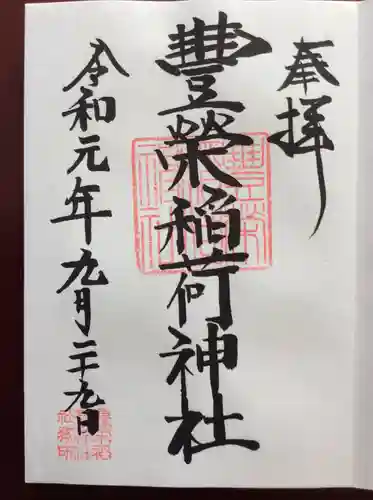 奉拝
豐榮稲荷神社
令和元年九月二十九日